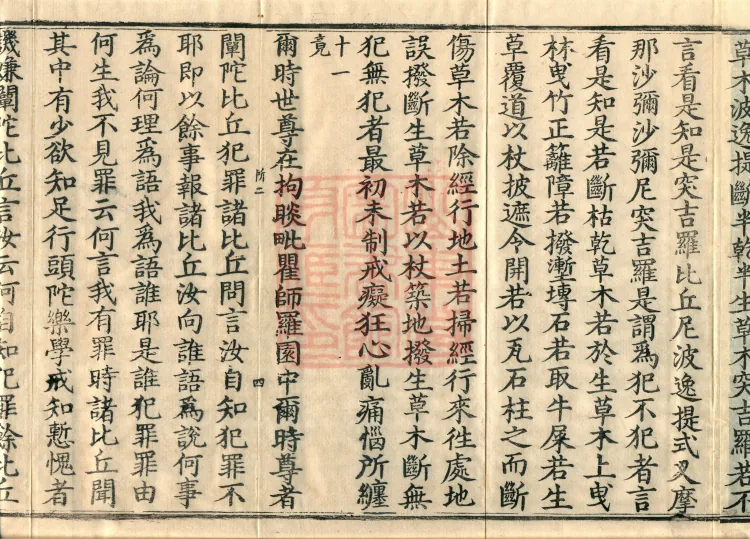 草木波逸提斷半乾半生草木突吉羅若不
言看是知是突吉羅比丘尼波逸提式叉摩
那沙彌沙彌尼突吉羅是謂為犯不犯者言
看是知是若斷枯乾草木若於生草木上曳
材曳竹正籬障若撥墼塼石若取牛屎若生
草覆道以杖披遮令開若以瓦石柱之而斷
傷草木若除經行地土若掃經行來往處地
誤撥斷生草木若以杖築地撥生草木斷無
犯無犯者最初未制戒癡狂心亂痛惱所纏
十一
竟
爾時世尊在拘睒毗瞿師羅園中爾時尊者
闡陀比丘犯罪諸比丘問言汝自知犯罪不
耶即以餘事報諸比丘汝向誰語為說何事
為論何理為語我為語誰耶是誰犯罪罪由
何生我不見罪云何言我有罪時諸比丘聞
其中有少欲知足行頭陀樂學戒知慙愧者
譏嫌闡陀比丘言汝云何自知犯罪餘比丘